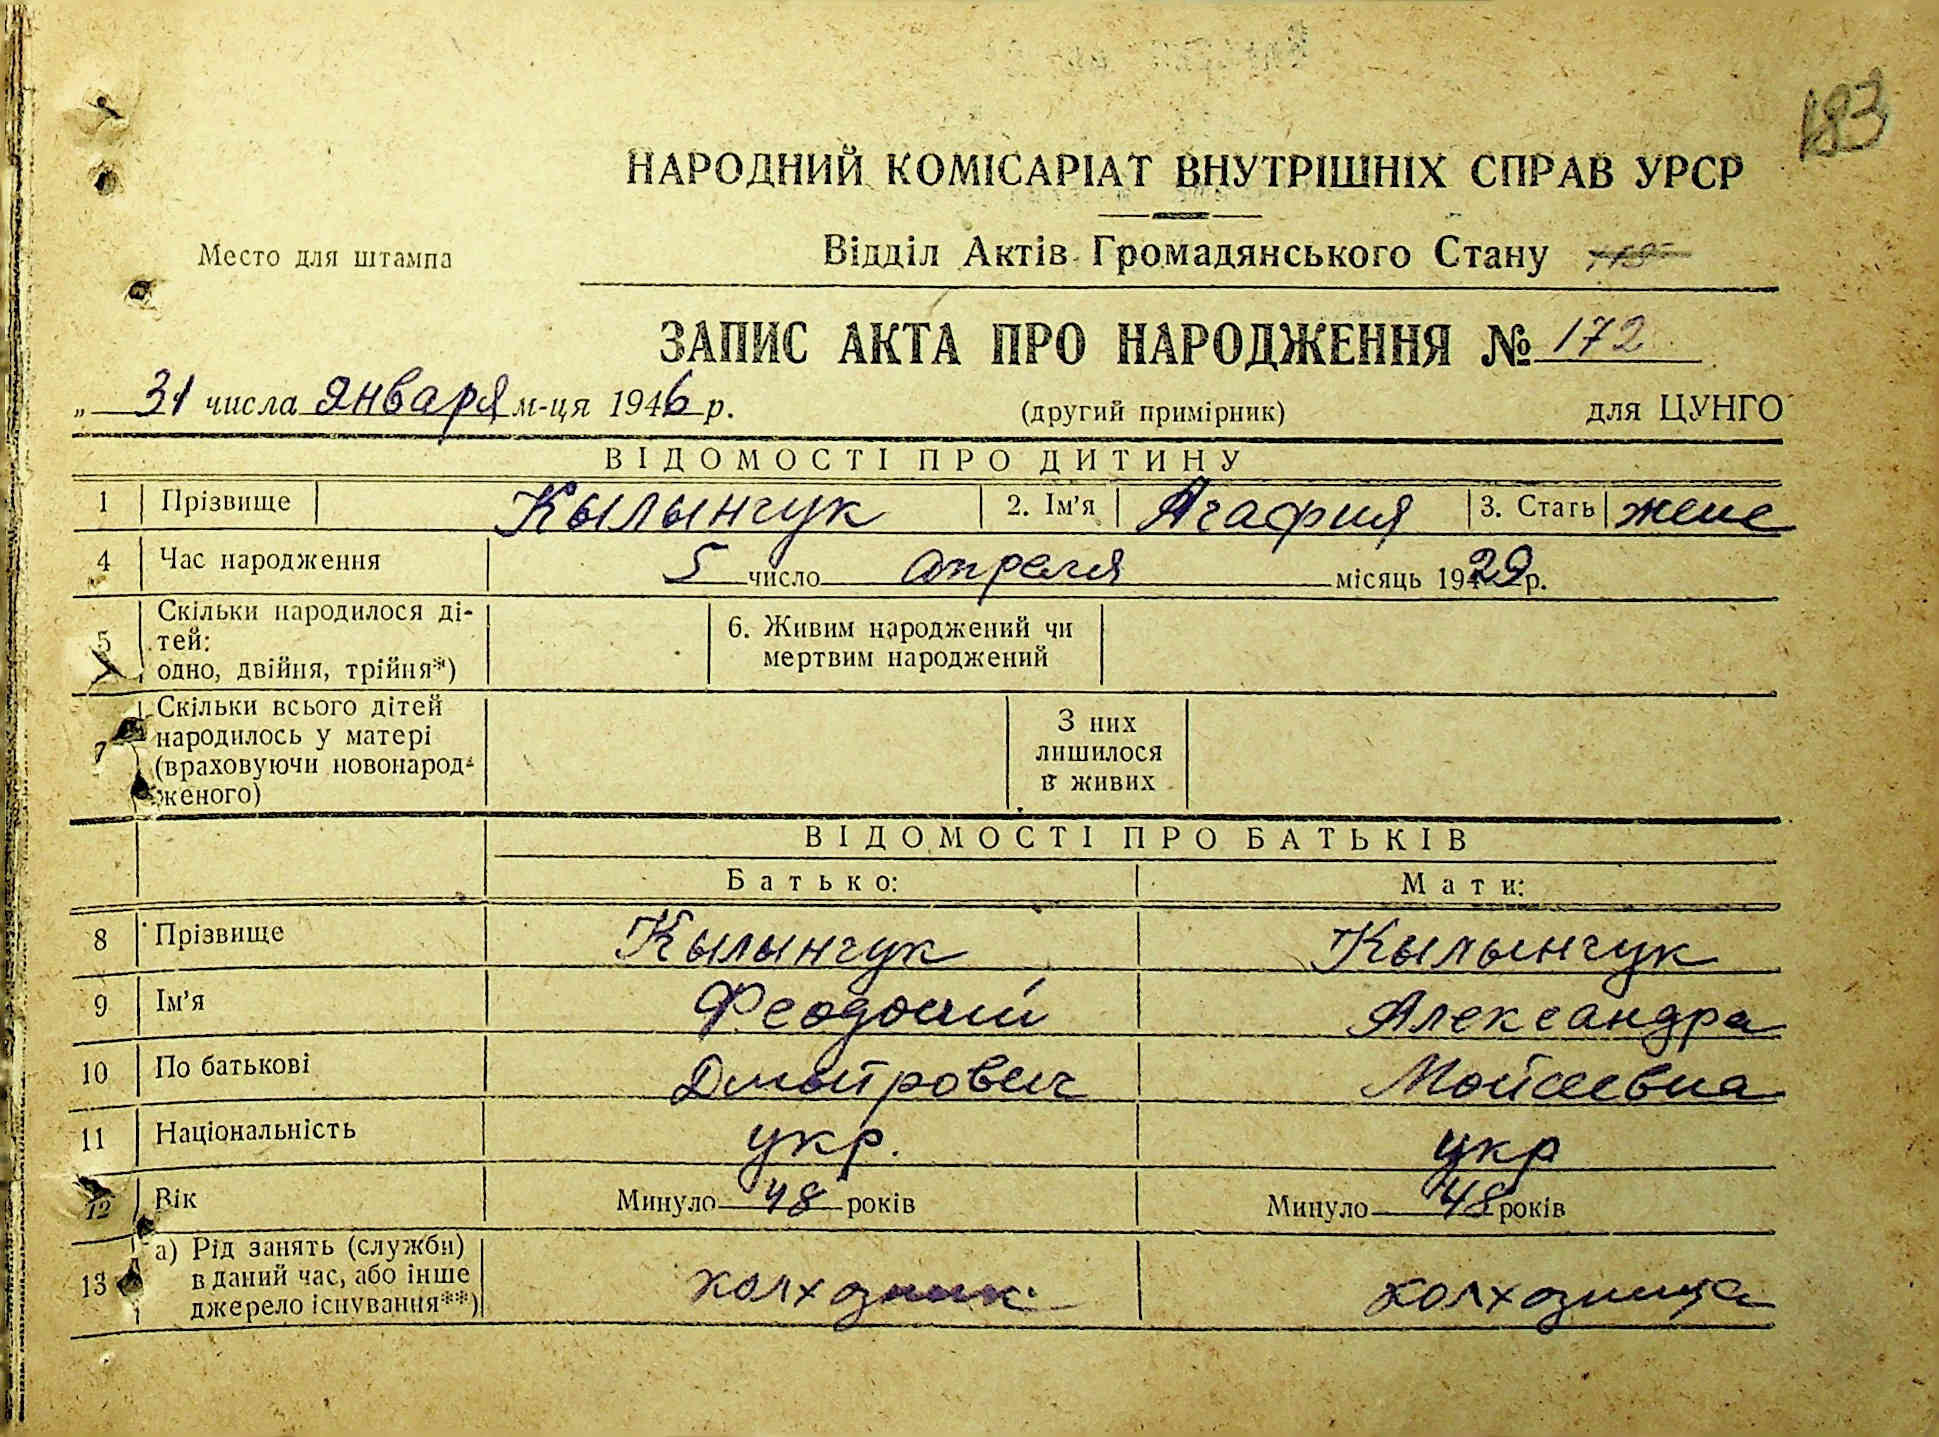 183
НАРОДНИЙ КОМІСАРІАТ ВНУТРІШНІХ СПРАВ УРСР
Место для штампа
Відділ Актів Громадянського Стану
ЗАПИС АКТА ПРО НАРОДЖЕННЯ № 172
„ 31 числа января м-ця 1946 р. (другий примірник) для ЦУНГО
ВІДОМОСТІ ПРО ДИТИНУ
1 Прізвище Кылынчук 2. Ім'я Агафия 3. Стать женс
4 Час народження 5 число апреля місяць 1929 р.
5 Скільки народилося ді-
тей:
одно, двійня, трійня*)
6. Живим народжений чи
мертвим народжений
7 Скільки всього дітей
народилось у матері
(враховуючи новонарод-
женого)
З них
лишилося
в живих
ВІДОМОСТІ ПРО БАТЬКІВ
Батько: Мати:
8 Прізвище Кылынчук Кылынчук
9 Ім'я Феодосий Александра
10 По батькові Дмитрович Мойсеевна
11 Національність укр. укр
12 Вік Минуло 48 років Минуло 48 років
13 а) Рід занять (служби)
в даний час, або інше
джерело існування**)
колхозник колхозница